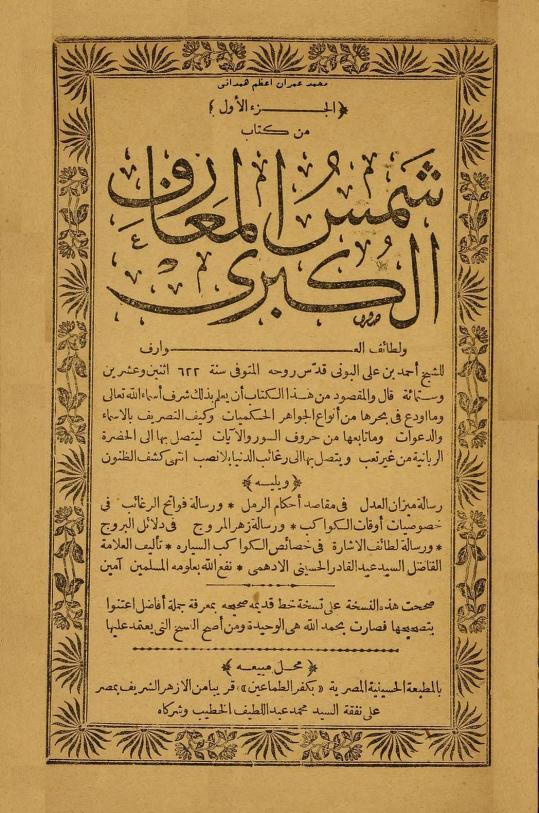 محمد عمران اعظم همدانی
﴿ الجـــزء الأول ﴾
من كتاب
شمس المعارف
الكبرى
ولطائف العـــوارف
للشيخ أحمد بن على البونى قدّس روحه المتوفى سنة ٦٢٢ اثنين وعشرين
وستمائة قال والمقصود من هذا الكتاب أن يعلم بذلك شرف أسماء الله تعالى
وما أودع فى بحرها من أنواع الجواهر الحكميات وكيف التصريف بالاسماء
والدعوات وما تابعها من حروف السور والآيات ليتصل بها الى الحضرة
الربانية من غير تعب ويتصل بها الى رغائب الدنيا بلا نصب انتهى كشف الظنون
﴿ ويليه ﴾
رسالة ميزان العدل فى مقاصد أحكام الرمل * ورسالة فواتح الرغائب فى
خصوصيات أوقات الكواكب * ورسالة زهر المروج فى دلائل البروج
* ورسالة لطائف الاشارة فى خصائص الكواكب السياره * تأليف العلامة
الفاضل السيد عبد القادر الحسينى الادهمى * نفع الله بعلومه المسلمين آمين
صححت هذه النسخة على نسخة خط قديمه صحيحه بمعرفة جملة أفاضل اعتنوا
بتصحيحها فصارت بحمد الله هى الوحيدة ومن أصح النسخ التى يعتمد عليها
﴿ محل مبيعه ﴾
بالمطبعة الحسينية المصرية « بكفر الطماعين » قريبا من الازهر الشريف بمصر
على نفقة السيد محمد عبد اللطيف الخطيب وشركاه